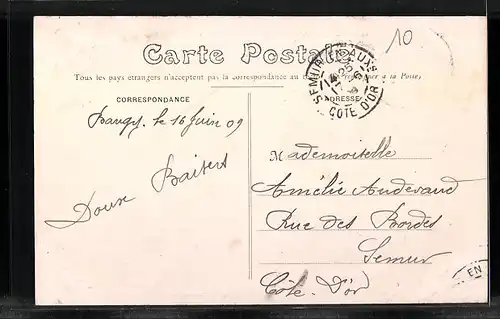 Carte Postale
10
Tous les pays étrangers n'acceptent pas la correspondance au
à la Poste,
SEMUR-EN-AUXS
COTE D'OR
CORRESPONDANCE
ADRESSE
le 16 Juin 09
Doux Baisers
Mademoiselle
Amélie Andevaud
Rue des Bordes
Semur
Côte d'or
EN